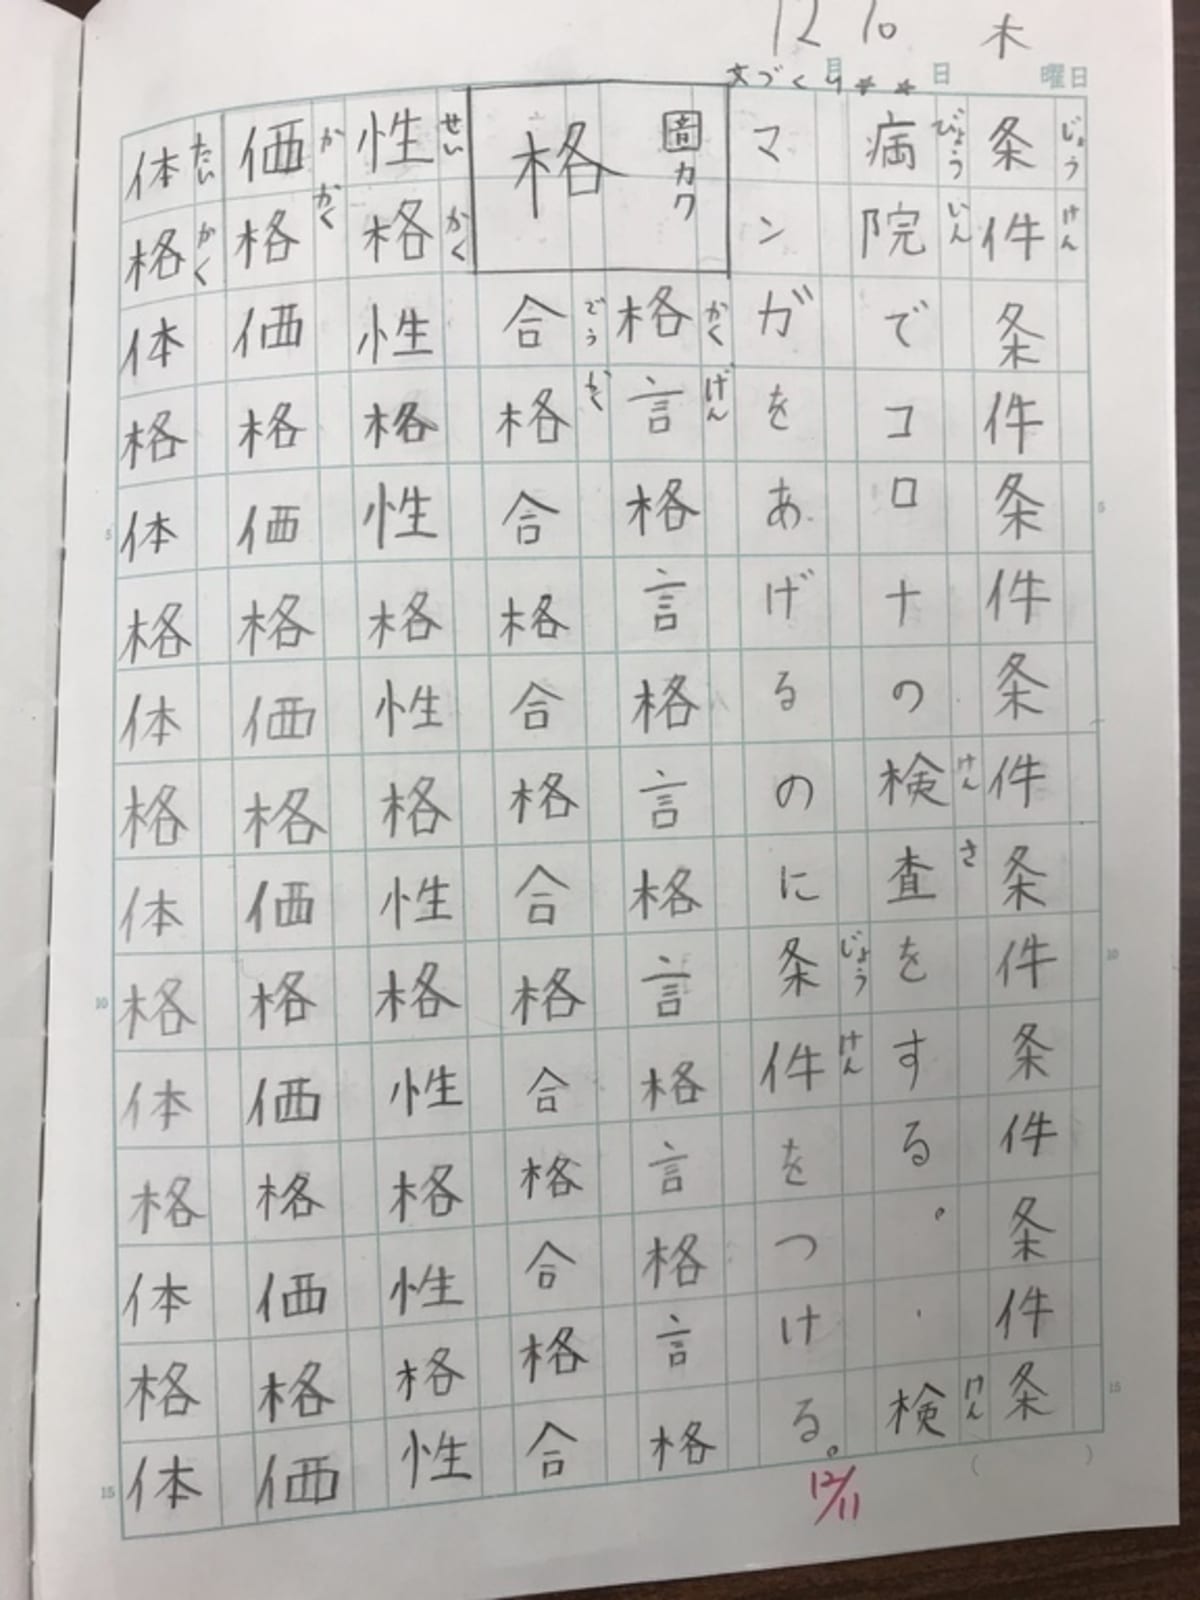 12月10日木曜日
文づくり**
じょうけん
条件条件条件条件条件条件条件条
びょういん けんさ けん
病院でコロナの検査をする。・検
じょうけん
マンガをあげるのに条件をつける。
音カク
格
かくげん
格言格言格言格言格言格言格
ごうかく
合格合格合格合格合格合格合
せいかく
性格性格性格性格性格性格性格性
かかく
価格価格価格価格価格価格価格価
たいかく
体格体格体格体格体格体格体格体
5
10
15
5
10
15
( )
12/11